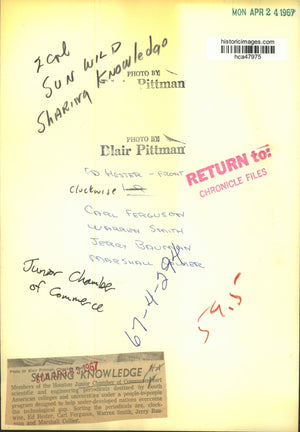 MON APR 24 1967
historicimages.com
hca47975
2 col
SUN WILD
Sharing Knowledge
PHOTO BY
Pittman
PHOTO BY
Blair Pittman
RETURN to:
CHRONICLE FILES
ED HESTER - FRONT
clockwise
CARL FERGUSON
WARREN SMITH
JERRY BAUMAN
MARSHALL
Junior Chamber
of Commerce
67-4-294
59.5
SHARING KNOWLEDGE
Members of the Houston Junior Chamber of Commerce sort
scientific and engineering periodicals destined for South
American colleges and universities under a people-to-people
program designed to help under-developed nations overcome
the technological gap. Sorting the periodicals are, clock-
wise, Ed Hester, Carl Ferguson, Warren Smith, Jerry Bau-
man and Marshall Collier.